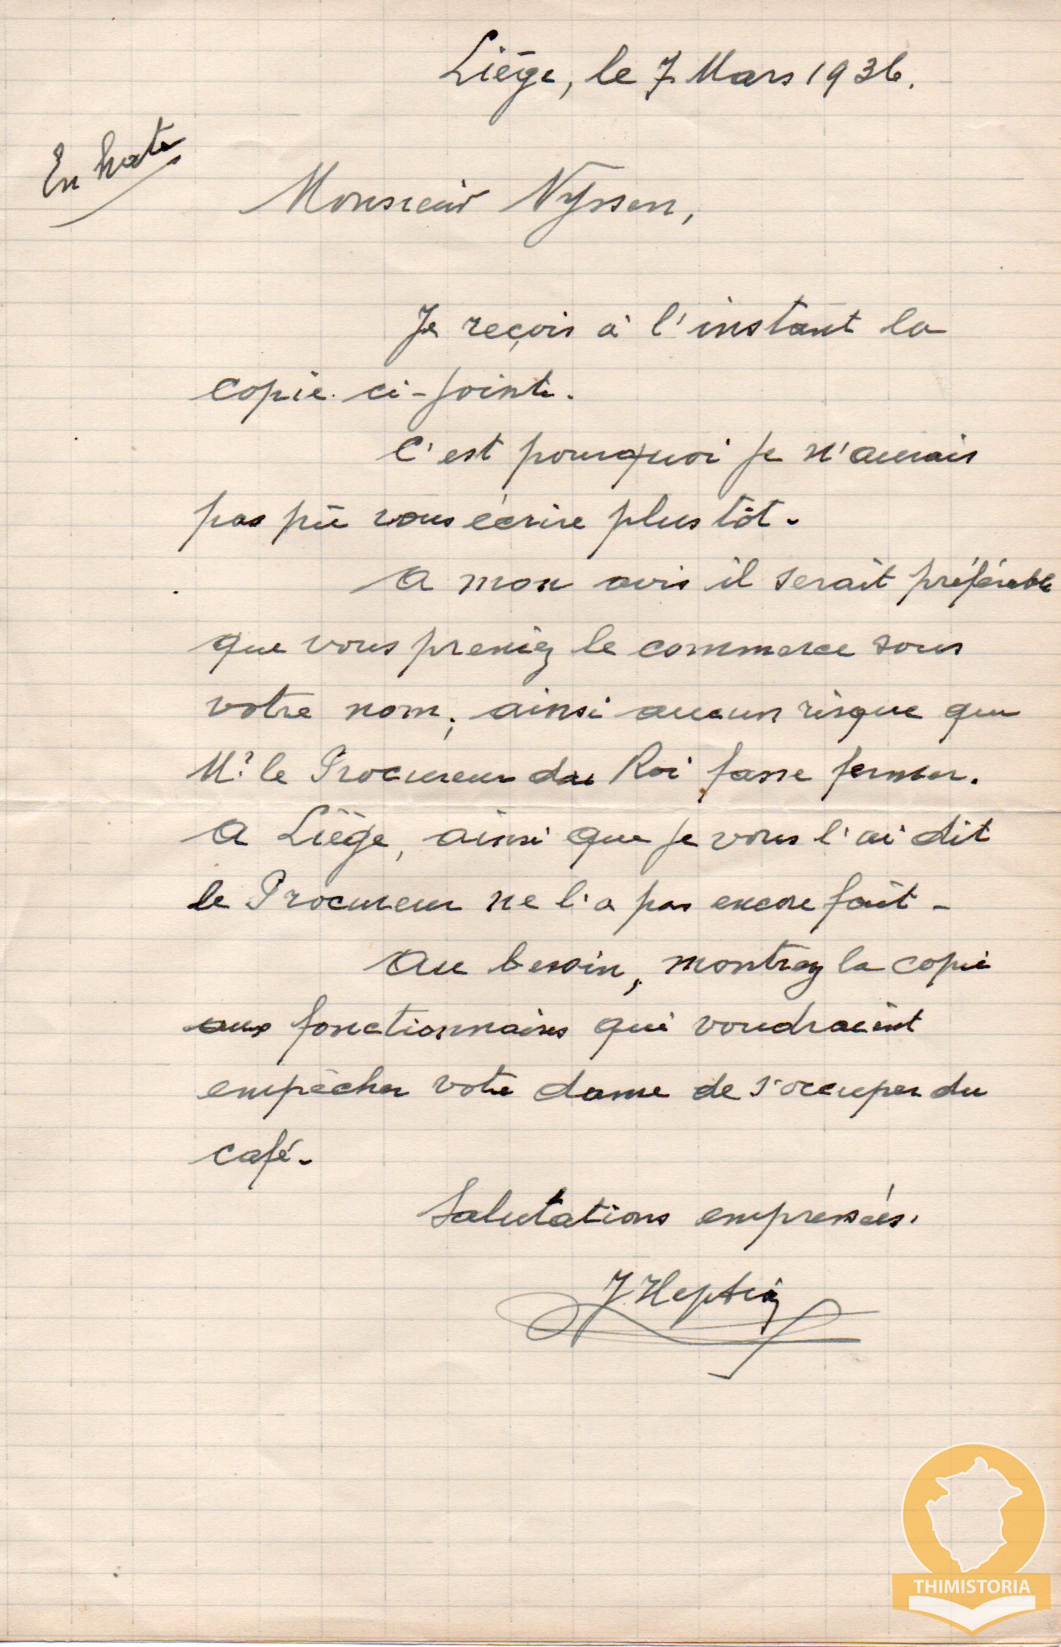 Liège, le 7 Mars 1936.
En hate
Monsieur Nyssen,
Je reçois à l'instant la
copie ci-jointe.
C'est pourquoi je n'aurais
pas pû vous écrire plus tôt.
A mon avis il serait préférable
que vous preniez le commerce sous
votre nom; ainsi aucun risque que
Mr le Procureur du Roi fasse fermer.
A Liège, ainsi que je vous l'ai dit
le Procureur ne l'a pas encore fait -
Au besoin, montrez la copie
aux fonctionnaires qui voudraient
empêcher votre dame de s'occuper du
café.
Salutations empressées.
J. Heptia
THIMISTORIA